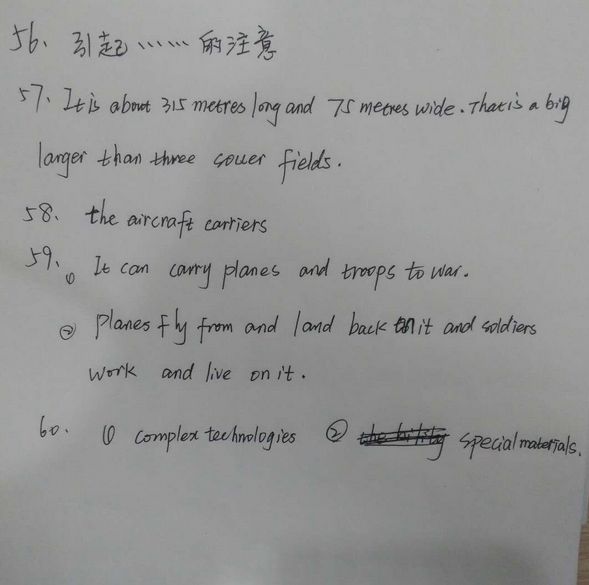 56. 引起……的注意
57. It is about 315 metres long and 75 metres wide. That is a big
larger than three soccer fields.
58. the aircraft carriers
59. ① It can carry planes and troops to war.
② planes fly from and land back on it and soldiers
work and live on it.
60. ① complex technologies ② special materials.